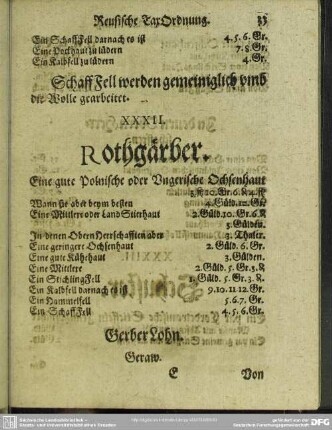 Reussische TaxOrdnung. 33
Ein SchaffFell darnach es ist 4. 5. 6. Gr.
Eine Bockhaut zu lüdern 7. 8. Gr.
Ein Kalbfell zu lüdern 4. Gr.
Schaff Fell werden gemeiniglich vmb
die Wolle gearbeitet.
XXXII.
Rothgärber.
Eine gute Polnische oder Vngerische Ochsenhaut
Wann sie aber beym besten 4. Güld. 12. Gr.
Eine Mitlere oder Land Stierhaut 2. Güld. 10. Gr. 6. K
5. Gülden.
In denen Obern Herrschafften aber 3. Thaler.
Eine geringere Ochsenhaut 2. Güld. 6. Gr.
Eine gute Kühehaut 3. Gülden.
Eine Mittlere 2. Güld. 5. Gr. 3. K
Ein StichlingFell Güld. 5. Gr. 3. K.
Ein Kalbfell darnach es ist 9. 10. 11 12. Gr.
Ein Hammelfell 5. 6. 7. Gr.
Ein SchaffFell 4. 5. 6. Gr.
Gerber Lohn.
Geraw.
E Von